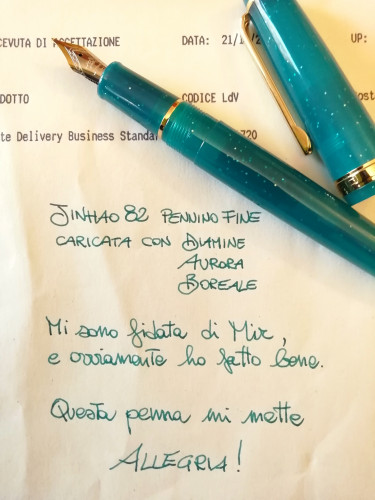 CEVUTA DI ACCETTAZIONE DATA: 21/1 UP:
DOTTO CODICE LdV
te Delivery Business Standa 720
JINHAO 82 PENNINO FINE
CARICATA CON DIAMINE
AURORA
BOREALE
Mi sono fidata di Mix,
e ovviamente ho fatto bene.
Questa penna mi mette
ALLEGRIA!